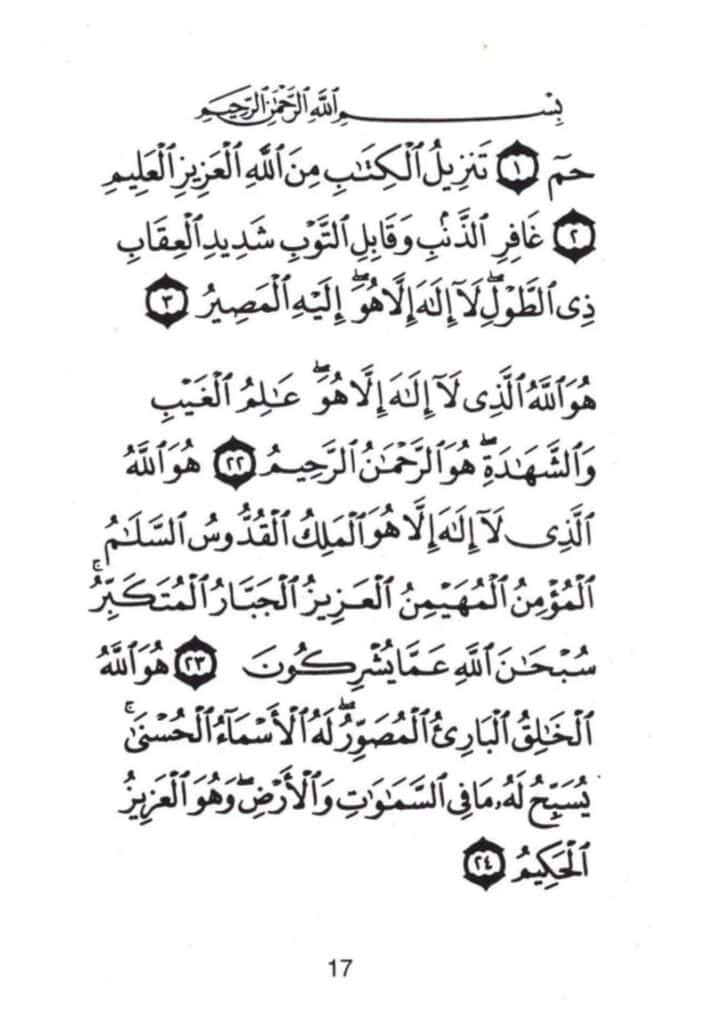 بِسْمِ ٱللَّهِ ٱلرَّحْمَٰنِ ٱلرَّحِيمِ
حمٓ ١ تَنزِيلُ ٱلْكِتَٰبِ مِنَ ٱللَّهِ ٱلْعَزِيزِ ٱلْعَلِيمِ
٢ غَافِرِ ٱلذَّنۢبِ وَقَابِلِ ٱلتَّوْبِ شَدِيدِ ٱلْعِقَابِ
ذِى ٱلطَّوْلِۖ لَآ إِلَٰهَ إِلَّا هُوَۖ إِلَيْهِ ٱلْمَصِيرُ ٣
هُوَ ٱللَّهُ ٱلَّذِى لَآ إِلَٰهَ إِلَّا هُوَۖ عَٰلِمُ ٱلْغَيْبِ
وَٱلشَّهَٰدَةِۖ هُوَ ٱلرَّحْمَٰنُ ٱلرَّحِيمُ ٢٢ هُوَ ٱللَّهُ
ٱلَّذِى لَآ إِلَٰهَ إِلَّا هُوَ ٱلْمَلِكُ ٱلْقُدُّوسُ ٱلسَّلَٰمُ
ٱلْمُؤْمِنُ ٱلْمُهَيْمِنُ ٱلْعَزِيزُ ٱلْجَبَّارُ ٱلْمُتَكَبِّرُۚ
سُبْحَٰنَ ٱللَّهِ عَمَّا يُشْرِكُونَ ٢٣ هُوَ ٱللَّهُ
ٱلْخَٰلِقُ ٱلْبَارِئُ ٱلْمُصَوِّرُۖ لَهُ ٱلْأَسْمَآءُ ٱلْحُسْنَىٰۚ
يُسَبِّحُ لَهُۥ مَا فِى ٱلسَّمَٰوَٰتِ وَٱلْأَرْضِۖ وَهُوَ ٱلْعَزِيزُ
ٱلْحَكِيمُ ٢٤
17